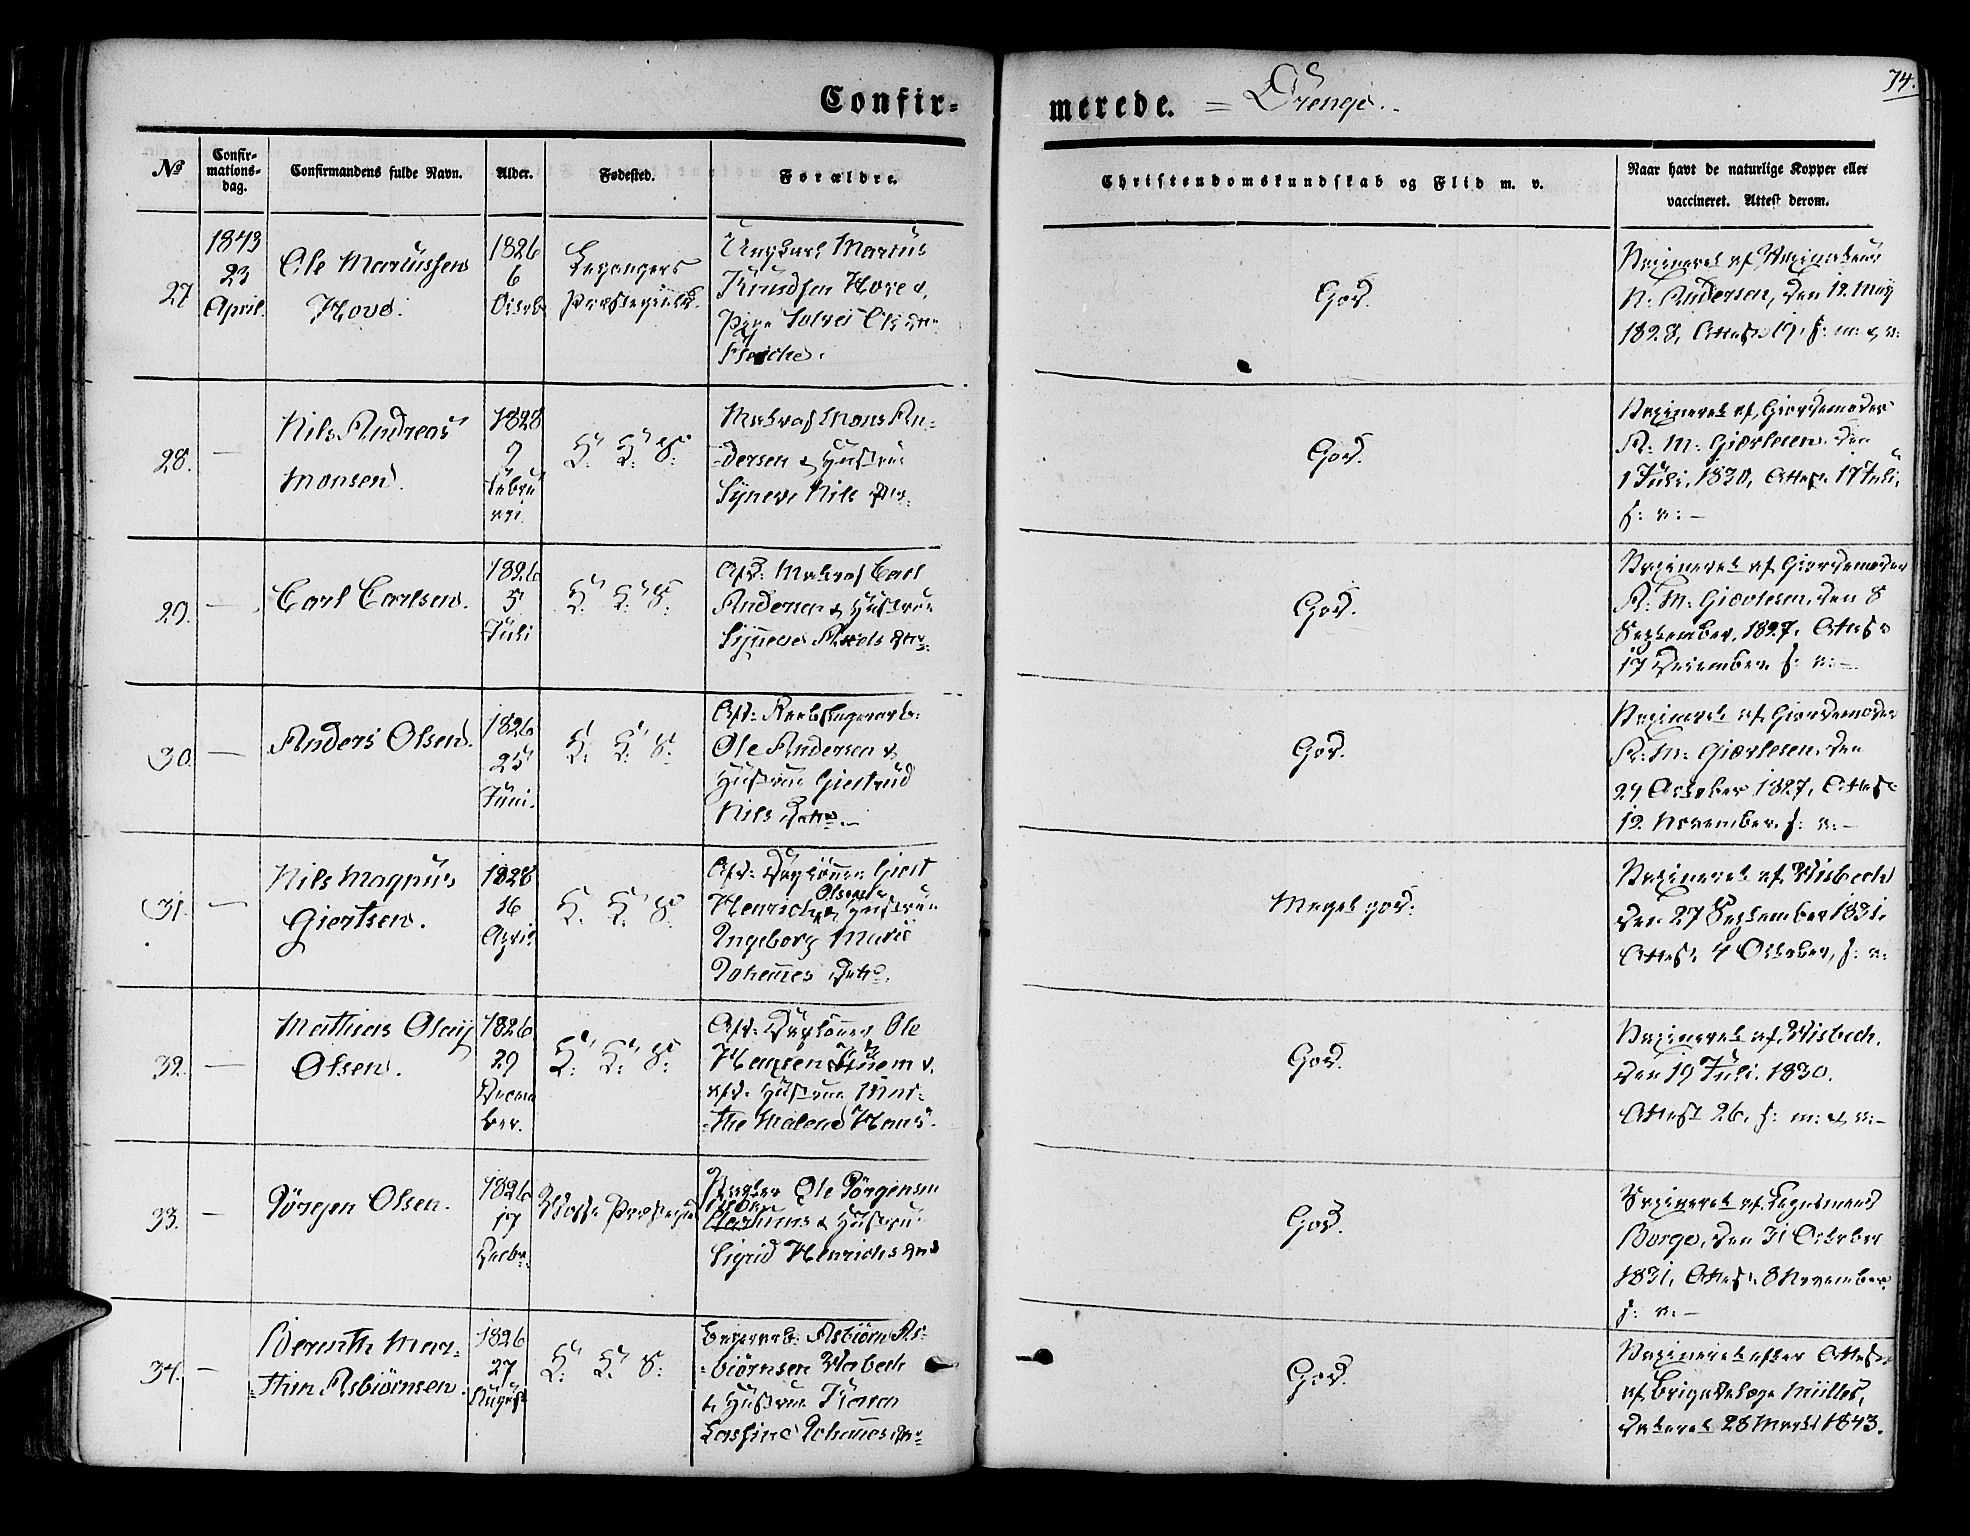 Confir-
merede. = Drenge.
74.
No
Confir-
mations-
dag.
Confirmandens fulde Navn.
Alder.
Fødested.
Forældre.
Christendomskundskab og Flid m. v.
Naar havt de naturlige Kopper eller
vaccineret. Attest derom.
27
1843
23
April
Ole Mariussen
Hove.
1826
6
Octob
Leganger
Præstegield.
Ungkarl Marius
Knudsen Hove &
Pige Ols Dtr
God.
Vaccineret af
N. Andersen, den 12 May
1828, Attest 17, s: m: & v:
28.
—
Nils Andreas
Monsen.
1828
7
Febru
ari
K: K: S:
Matros Mons An-
dersen & Hustrue
Synneve Nils Dtr.
God.
Vaccineret af Giordemoder
A. M. Giertsen den
1 Juli 1830, Attest 17 Juli,
s: v: —
29.
—
Carl Carlsen.
1826
5
Juli
K: K: S:
Afd: Matros Carl
Andersen & Hustrue
Synneve Axels Dtr:
God.
Vaccineret af Giordemoder
A: M: Giertsen, den 8
September 1827, Attest
17 December s: v: —
30.
—
Anders Olsen.
1826
25
Juni.
K: K: S:
Afd: Reebslagerarb:
Ole Andersen &
Hustrue Giertrud
Nils Datter —
God.
Vaccineret af Giordemoder
A: M: Giertsen, den
24 October 1827, Attest
12 November, s: v: —
31.
—
Nils Magnus
Giertsen.
1828
16
April
K: K: S:
Afd: Dagkarl Giert
Henrich Olsen & Hustrue
Ingeborg Marie
Johannes Dtr.
Meget god.
Vaccineret af Wisbech
den 27 September 1831,
Attest 4 October, s: v:
32.
—
Mathias Olay
Olsen.
1826
29
Decem
ber.
K: K: S:
Afd: Ole
Hansen &
afd. Hustrue Mar-
the Malene Hans
God.
Vaccineret af Wisbech.
den 19 Juli 1830.
Attest 26, s: m: & v: —
33.
—
Jörgen Olsen.
1826
17
Decbr.
Præstegield
Ole Jörgensen
& Hustrue
Sigrid Henrichs Dtr
God.
Vaccineret af Lensmand
Borge, den 31 October
1831, Attest 8 November
s: v: —
34.
—
Bernth Mar-
thin Asbiörnsen.
1826
27
August
K: K: S:
Asbiörn As-
biörnsen Wabech
& Hustrue Karen
Johannes Dtr
God.
Vaccineret efter Attest
af Brigadelæge Müller,
dateret 28 Marts 1843.